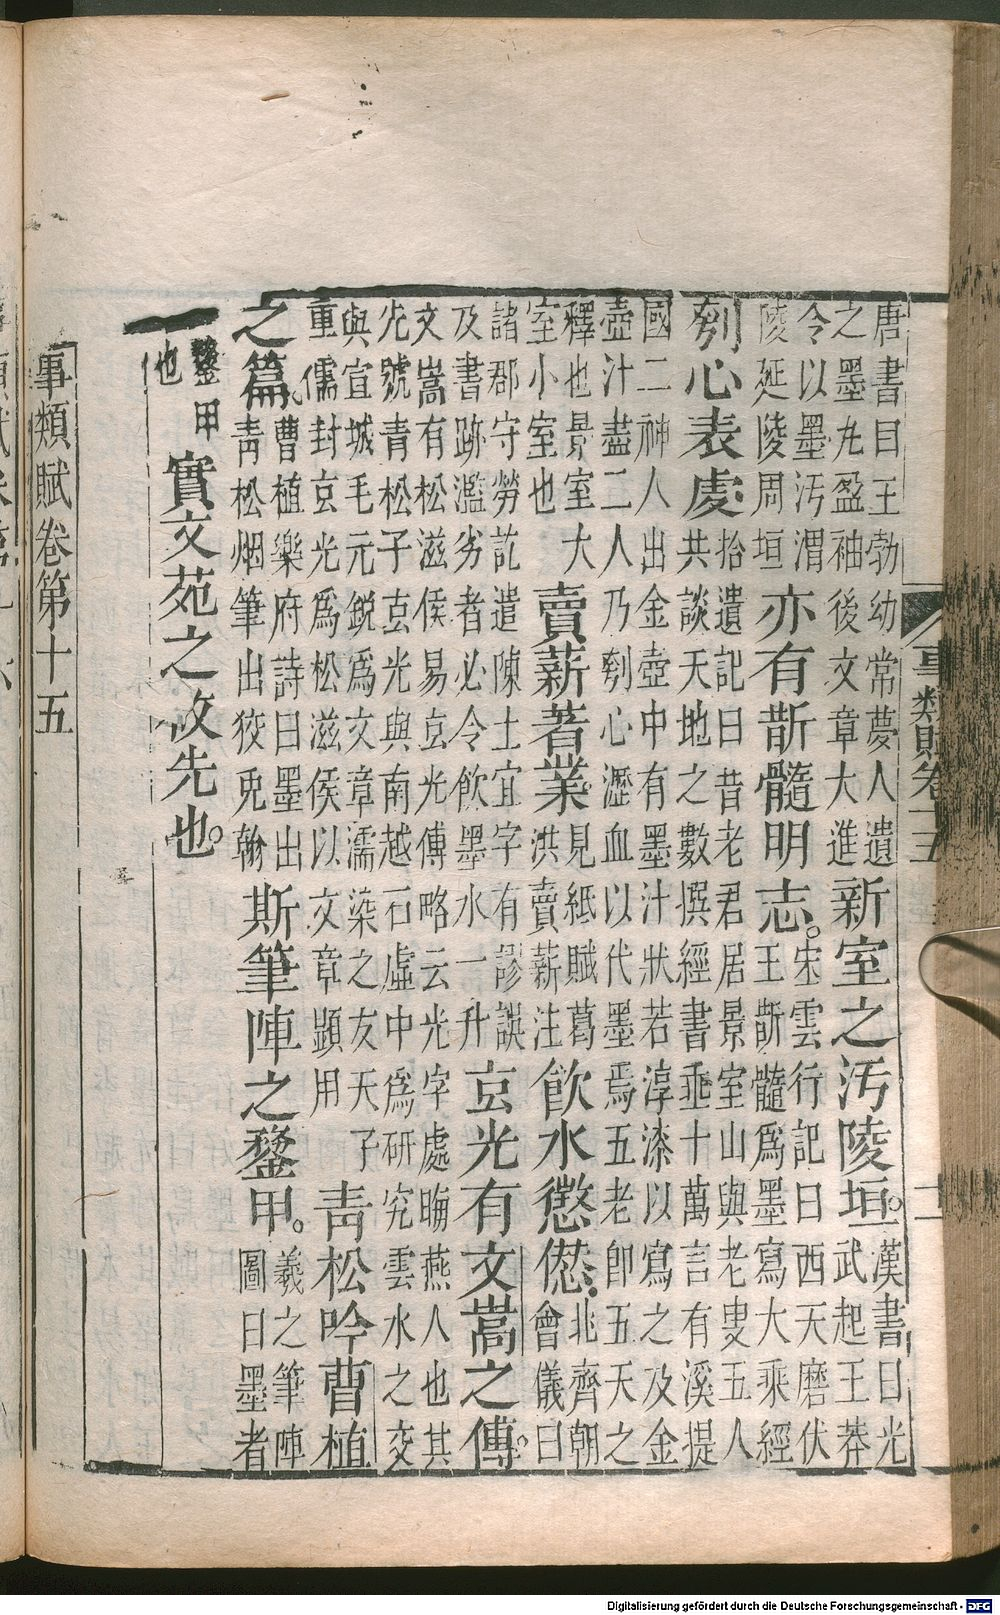 唐書曰王勃幼常夢人遺
之墨丸盈袖後文章大進
新室之汚陵垣。
漢書曰光
武起王莽
令以墨汚渭
陵延陵周垣
亦有斮髓明志。
宋雲行記曰西天磨伏
王斮髓爲墨寫大乘經
刳心表處
拾遺記曰昔老君居景室山與老叟五人
共談天地之數撰經書垂十萬言有溪提
國二神人出金壺中有墨汁狀若淳漆以寫之及金
壺汁盡二人乃刳心瀝血以代墨焉五老卽五天之
釋也景室大
室小室也
賣薪著業
見紙賦葛
洪賣薪注
飲水懲𠎝
北齊朝
會儀曰
諸郡守勞訖遣陳土宜字有謬誤
及書跡濫劣者必令飲墨水一升
玄光有文嵩之傳。
文嵩有松滋侯易玄光傳略云光字處晦燕人也其
先號青松子玄光與南越石虛中爲研究雲水之交
與宣城毛元銳爲文章濡染之友天子
重儒封玄光爲松滋侯以文章顯用
青松吟曹植
之篇
曹植樂府詩曰墨出
青松烟筆出狡兔翰
斯筆陣之鍪甲。
羲之筆陣
圖曰墨者
鍪甲
也
實文苑之攸先也。
事類賦卷第十五
事類賦卷十五
Digitalisierung gefördert durch die Deutsche Forschungsgemeinschaft - DFG